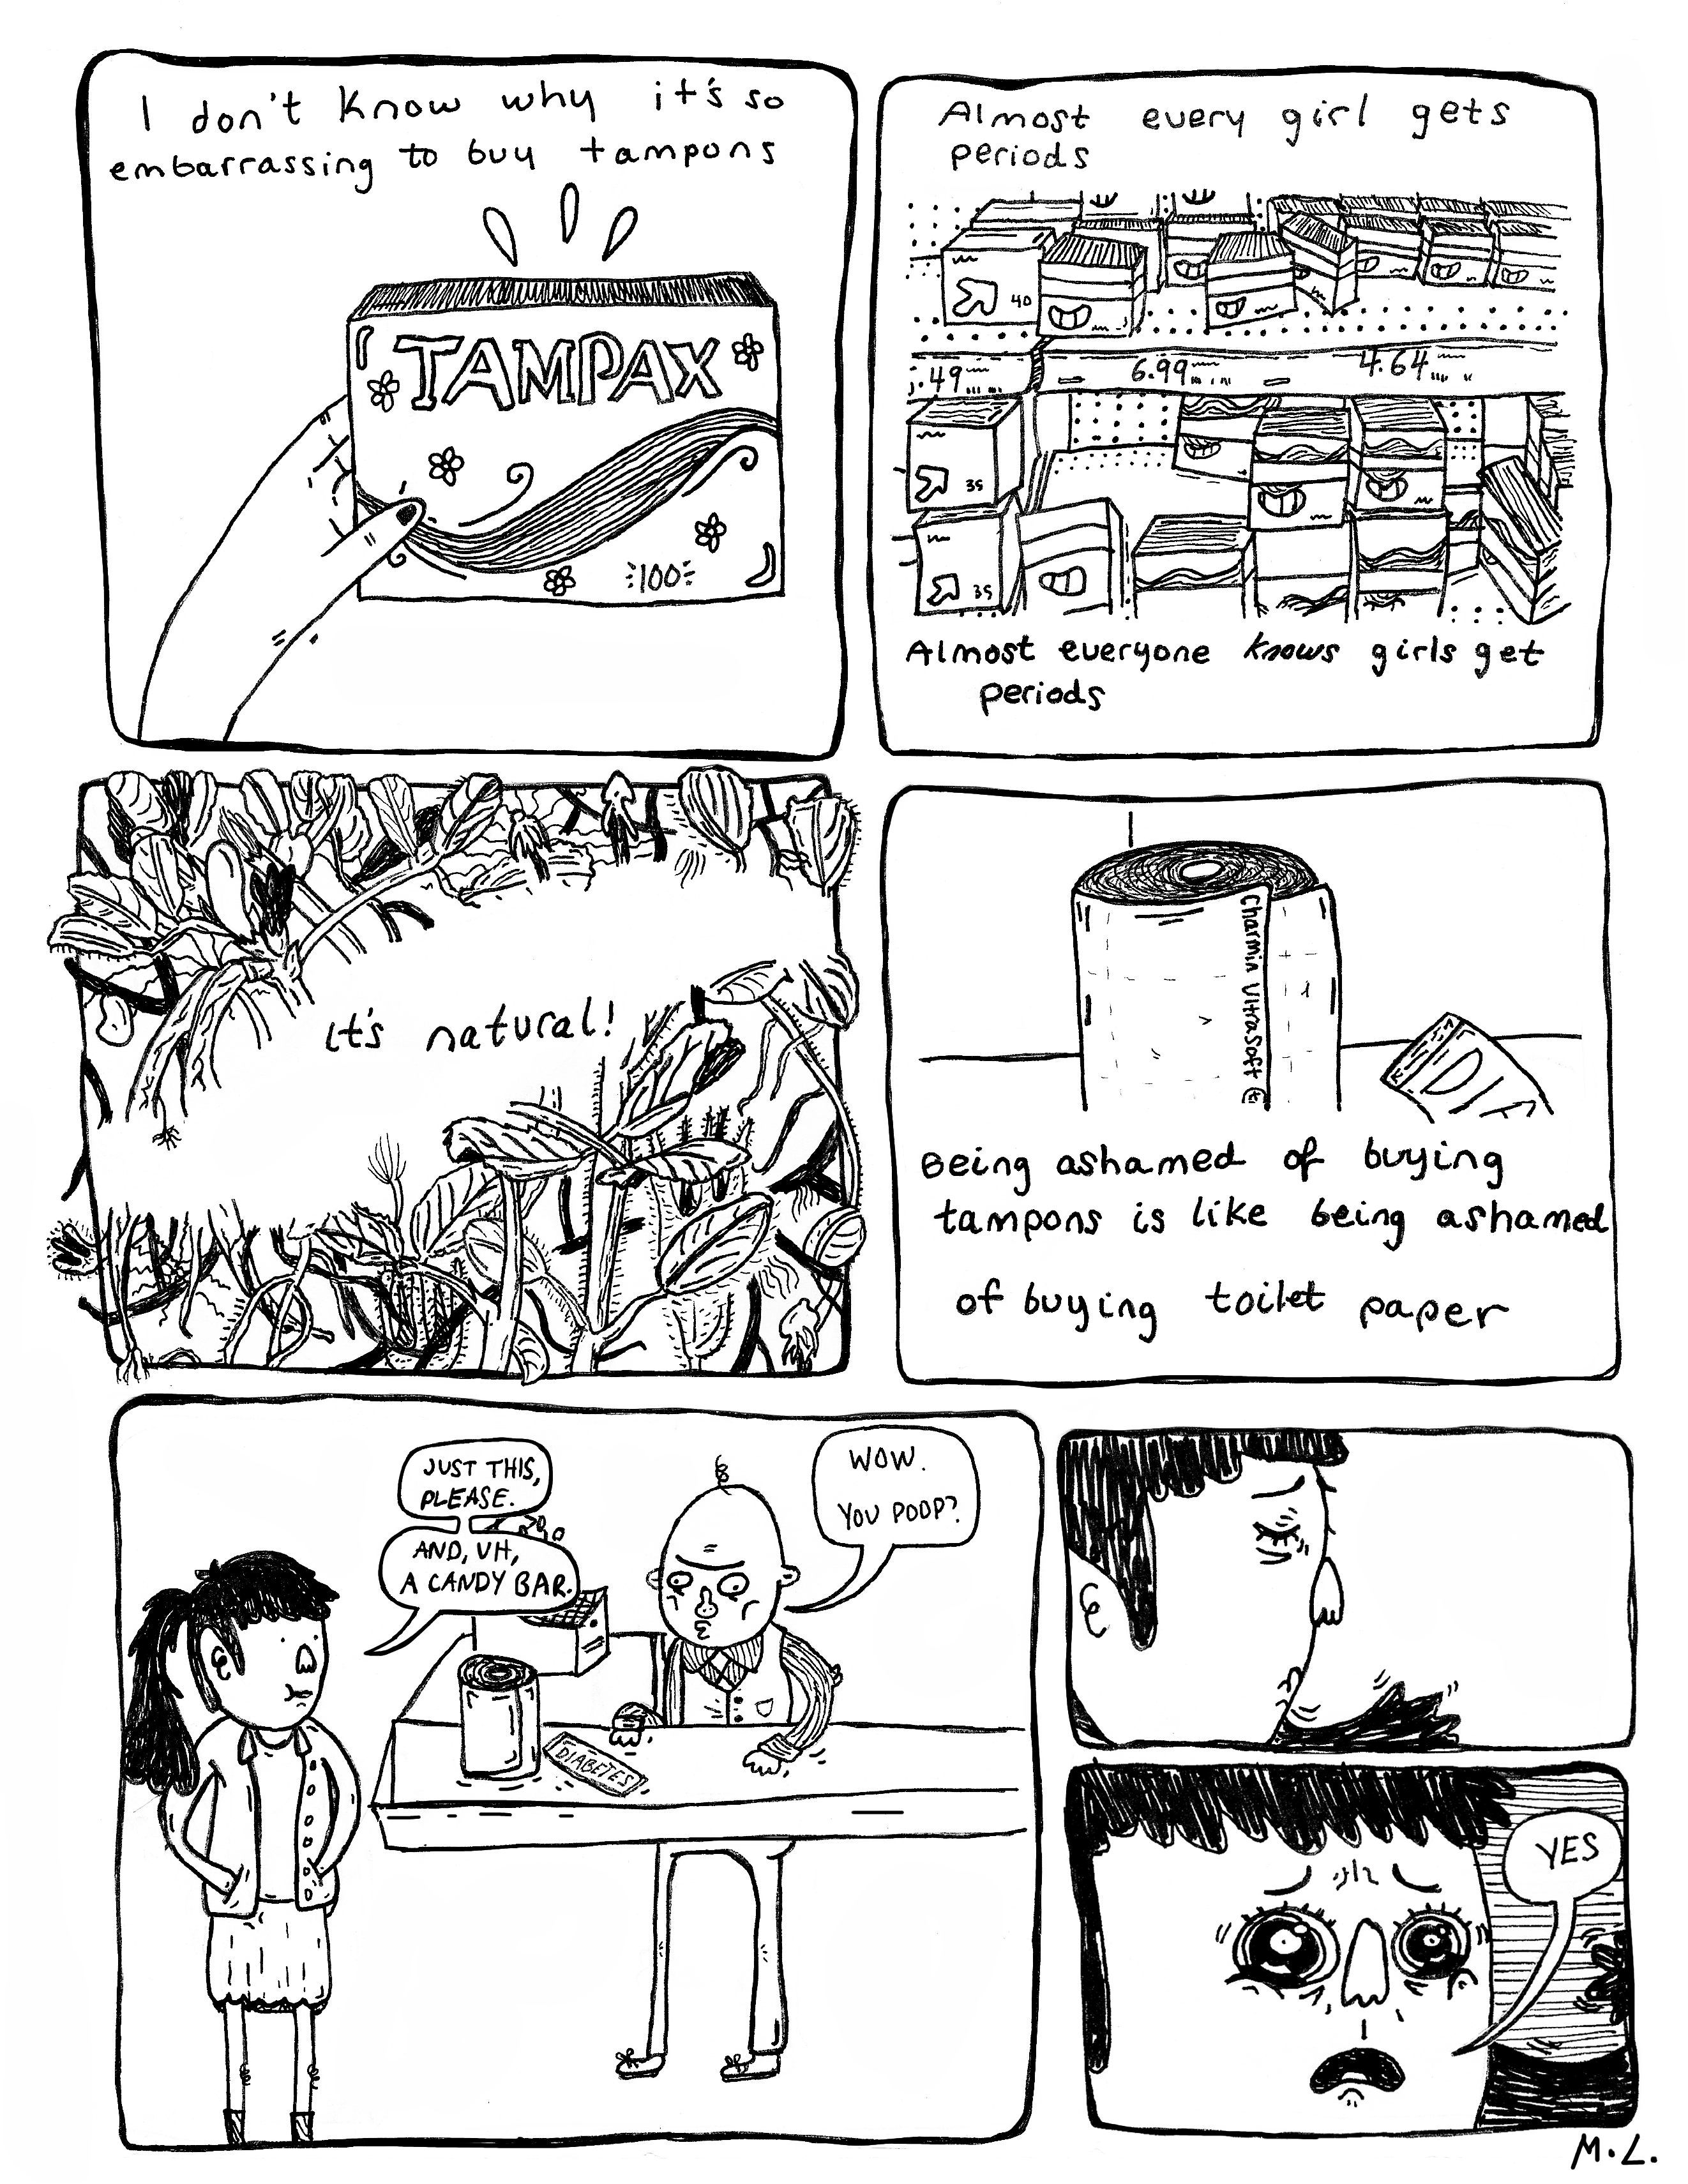 I don't know why it's so
embarrassing to buy tampons
TAMPAX
100
Almost every girl gets
periods
40
.49
6.99
4.64
35
35
Almost everyone knows girls get
periods
it's natural!
Charmin UltraSoft ©
DI
Being ashamed of buying
tampons is like being ashamed
of buying toilet paper
JUST THIS,
PLEASE.
AND, UH,
A CANDY BAR.
WOW.
YOU POOP?
DIABETES
YES
M.L.